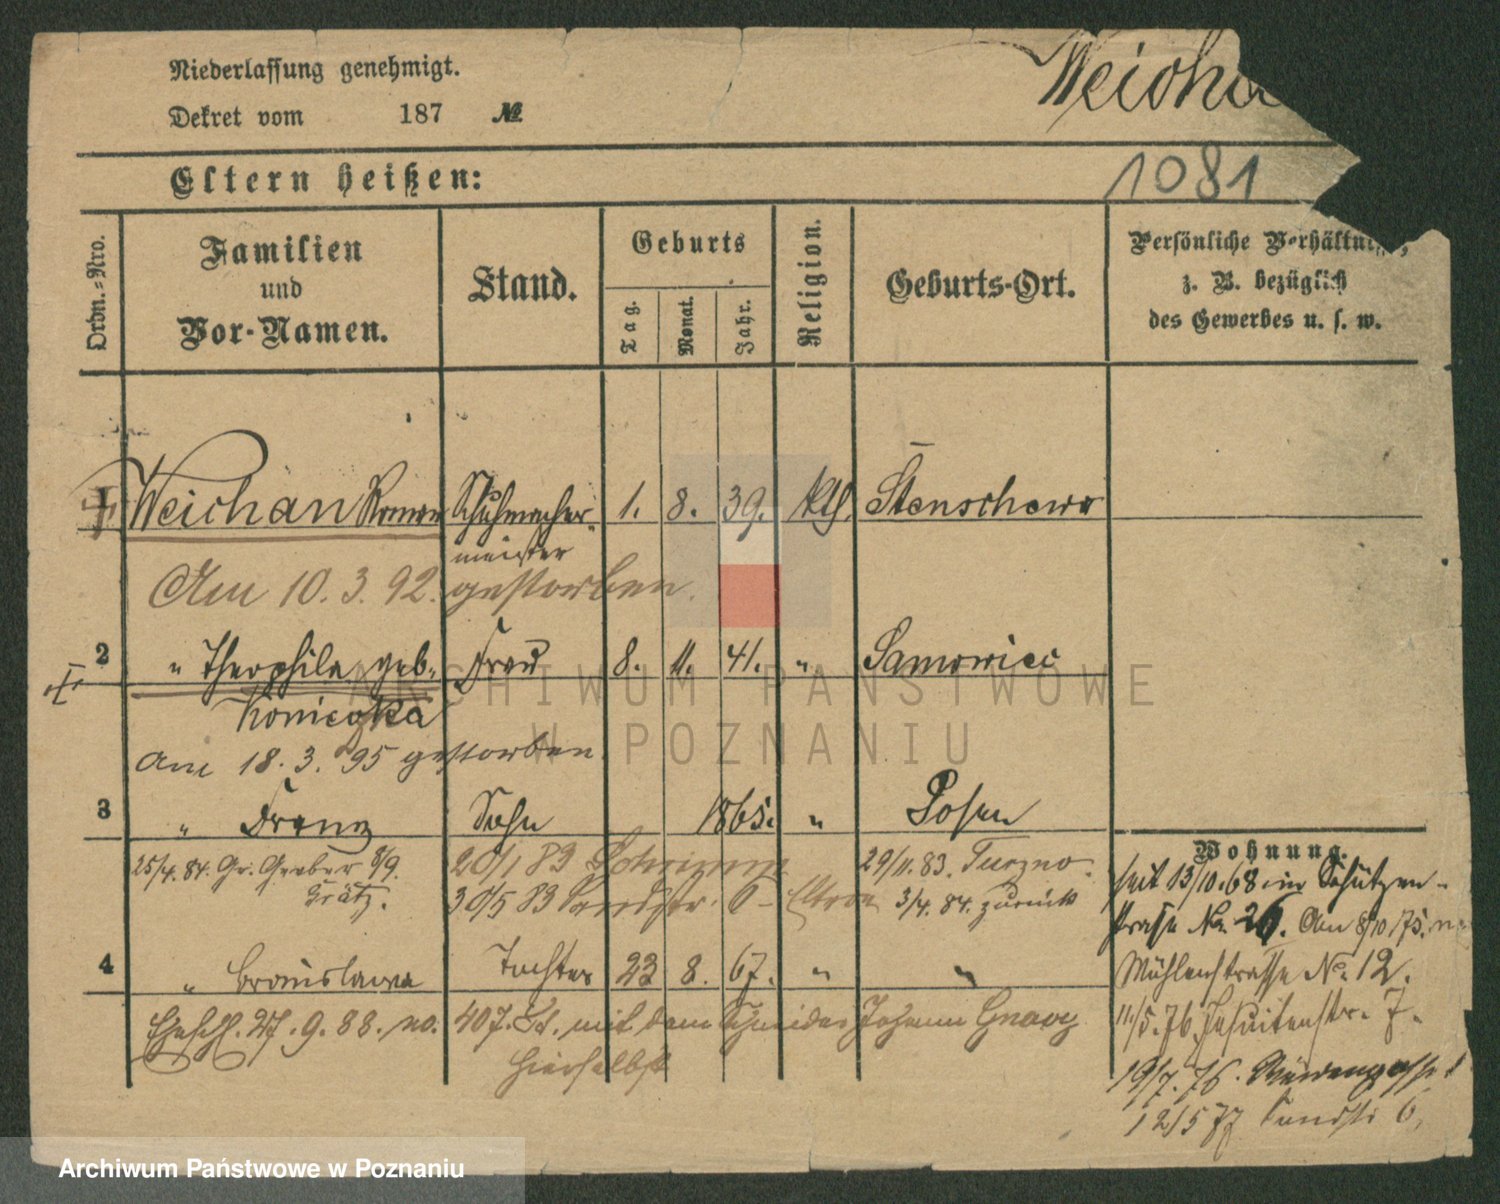 Niederlassung genehmigt.
Dekret vom 187 №
Weicha
1081
Eltern heißen:
Ordn.-Nro.
Familien
und
Vor-Namen.
Stand.
Geburts
Tag.
Monat.
Jahr.
Religion.
Geburts-Ort.
Persönliche Verhältnisse,
z. B. bezüglich
des Gewerbes u. s. w.
1 Weichan Roman Schuhmacher- 1. 8. 39. kth. Stenschewo
meister
Am 10. 3. 92. gestorben.
2 " Theophila geb. Frau 8. 11. 41. " Samowiec
Koniczka
am 18. 3. 95 gestorben.
3 " Franz Sohn 1865. " Posen
25/4. 84. Gr. Gerber 8/9. 20/1 83 29/11. 83. Turzno.
Grätz. 30/5 83 Sandstr. 6 - 3/4. 84. zurück
4 " Bronislawa Tochter 23 8. 67. " "
Eheschl. 27. 9. 88. no. 407. St. mit dem Schneider Johann Gnacy
hierselbst
Wohnung.
seit 13/10. 68 in Schützen-
straße No. 26. Am 8/10 75. n.
Mühlenstrasse No. 12.
11/5. 76 Jesuitenstr. 7.
19/7. 76.
12/5 77 Sandstr 6,
ARCHIWUM PAŃSTWOWE
W POZNANIU
Archiwum Państwowe w Poznaniu